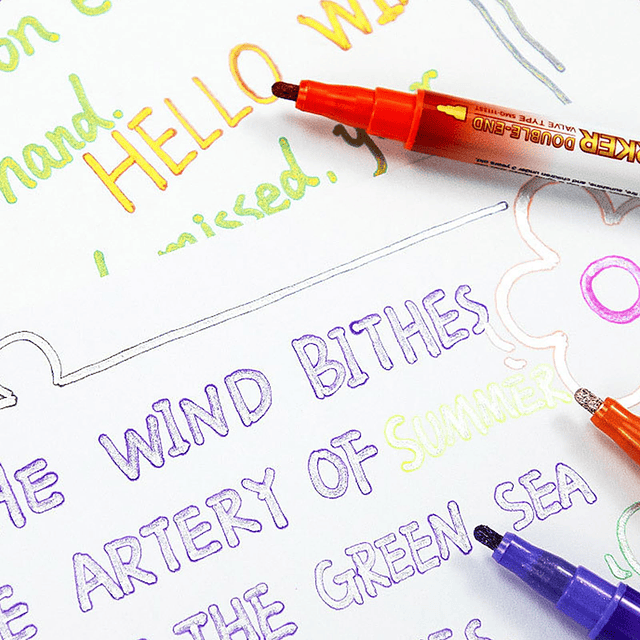 HELLO WI
hand.
missed,
HE WIND BITHES
ARTERY OF SUMMER
THE GREEN SEA
RKER DOUBLE-END
VALVE TYPE